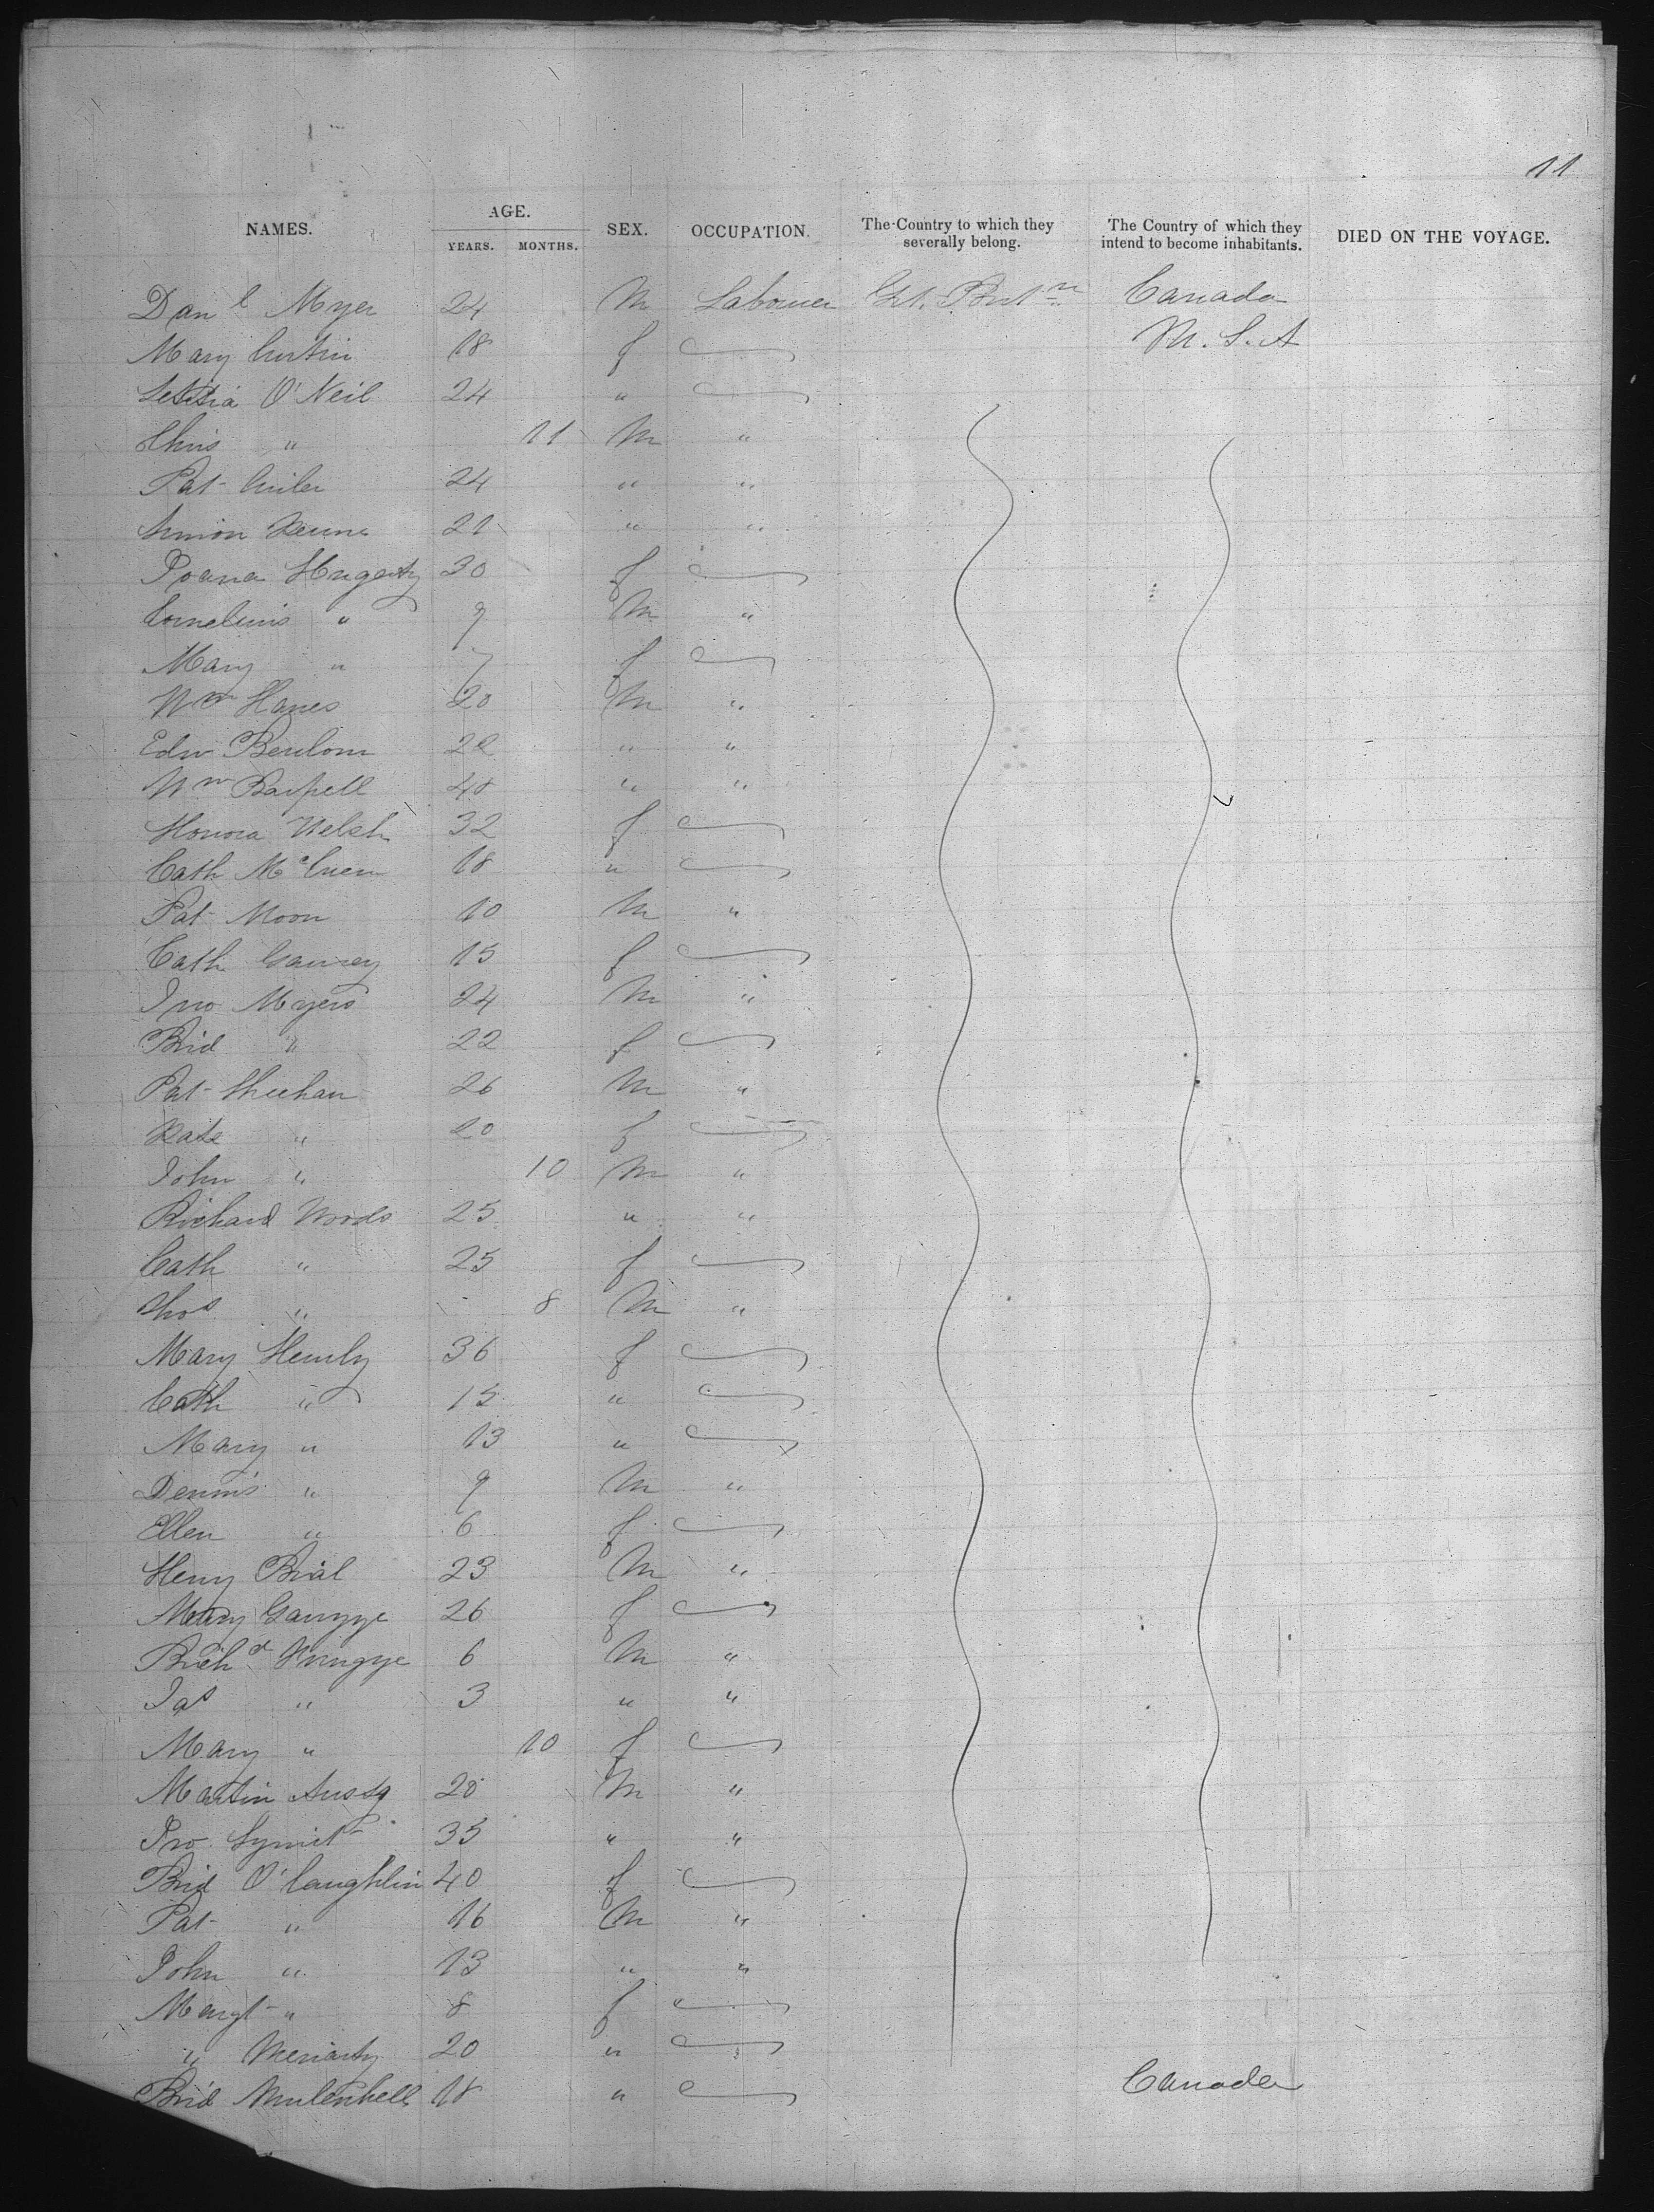 11
NAMES. AGE. YEARS. MONTHS. SEX. OCCUPATION. The Country to which they severally belong. The Country of which they intend to become inhabitants. DIED ON THE VOYAGE.
Danl Myer 24 M Labourer Grt. Britn Canada
Mary Curtin 18 f U.S.A
Letitia O'Neil 24 "
Chris " 11 M "
Pat 24 " "
21 " "
Hegarty 30 f
Cornelius " 9 M "
Mary " 7 f
Wm Hanes 20 M "
Edw 22 " "
Wm 48 " "
Honora Welsh 32 f
Cath 18 "
Pat Moon 10 M "
Cath 15 f
Jno Myers 24 M "
Brid " 22 f
Pat Sheehan 26 M "
Kate " 20 f
John " 10 M "
Richard Woods 25 " "
Cath " 25 f
Thos " 8 M "
Mary 36 f
Cath " 15 "
Mary " 13 "
Dennis " 9 M "
Ellen " 6 f
Henry 23 M "
Mary 26 f
Richd 6 M "
Jas " 3 " "
Mary " 10 f
Martin 28 M "
Jno 35 " "
Brid O'Laughlin 40 f
Pat " 16 M "
John " 13 " "
Margt " 8 f
" Moriarty 20 "
Brid 18 " Canada